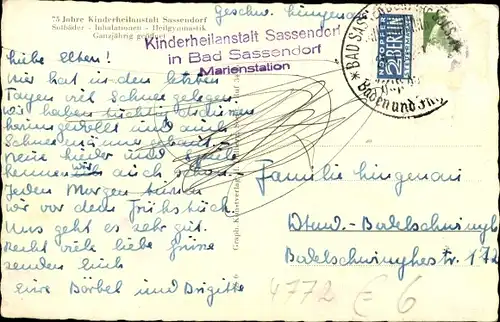 75 Jahre Kinderheilanstalt Sassendorf
Solbäder - Inhalationen - Heilgymnastik
Ganzjährig geöffnet
Geschw. Lingenau
Kinderheilanstalt Sassendorf
in Bad Sassendorf
Marienstation
BAD SASSENDORF
Baden und
NOTOPFER
2 BERLIN
STEUERMARKE
Liebe Eltern!
Wir hat in den letzten
Tagen viel Schnee gelegen.
Wir haben tüchtig
und auch
Schneemänner gebaut.
Neue Lieder und Spiele
kennen wir auch schon.
Jeden Morgen turnen
wir vor dem Frühstück
Uns geht es sehr gut.
Recht viele liebe Grüße
senden Euch
Eure Bärbel und Brigitte
Graph. Kunstverlag
Familie Lingenau
Dtmd.-Bodelschwingh
Bodelschwingherstr. 172
4772 E 6